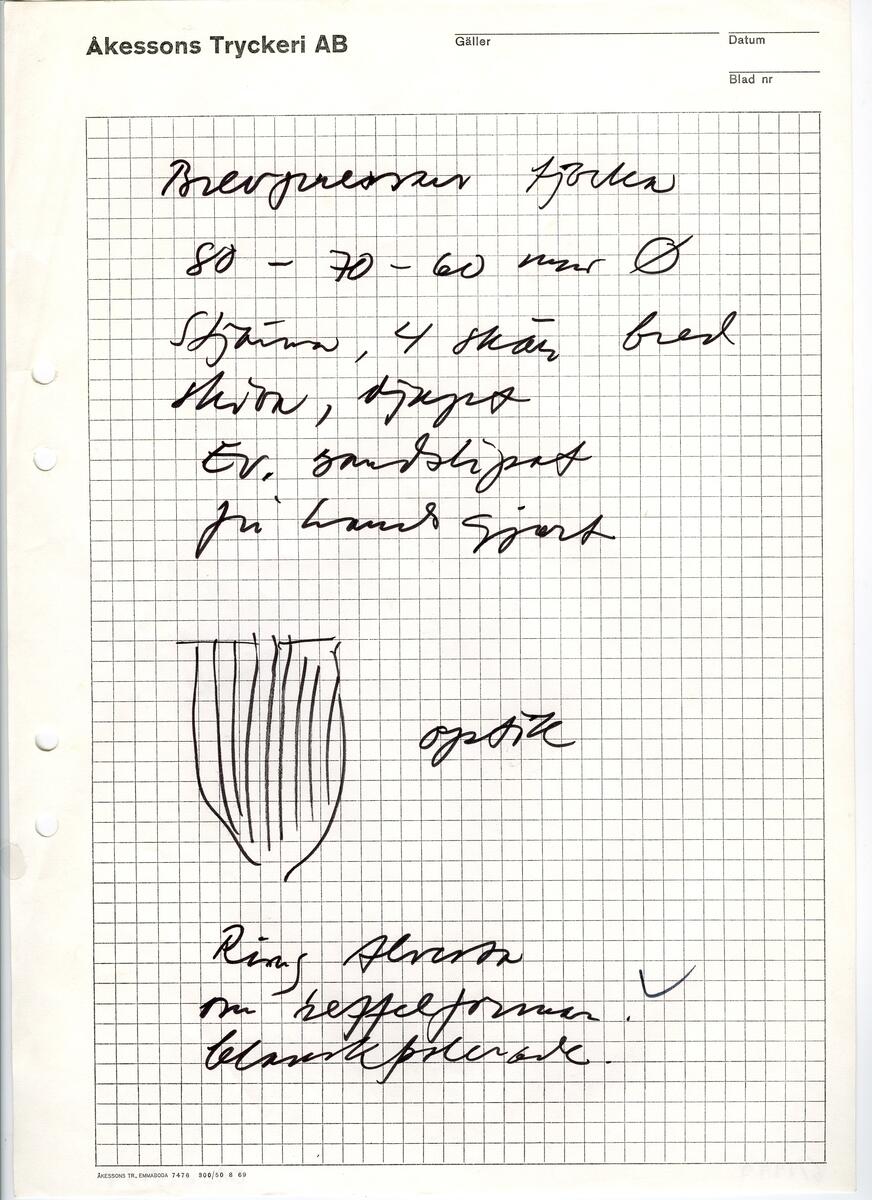 Åkessons Tryckeri AB
Gäller
Datum
Blad nr
Brevpressar tjocka
80 - 70 - 60 mm Ø
Stjärna, 4 skär, bred
skiva, djupt
Ev. sandslipat
fri hands gjort
optik
Ring Alvesta
om reffelformar.
blankpolerade.
ÅKESSONS TR., EMMABODA 7476 300/50 8 69